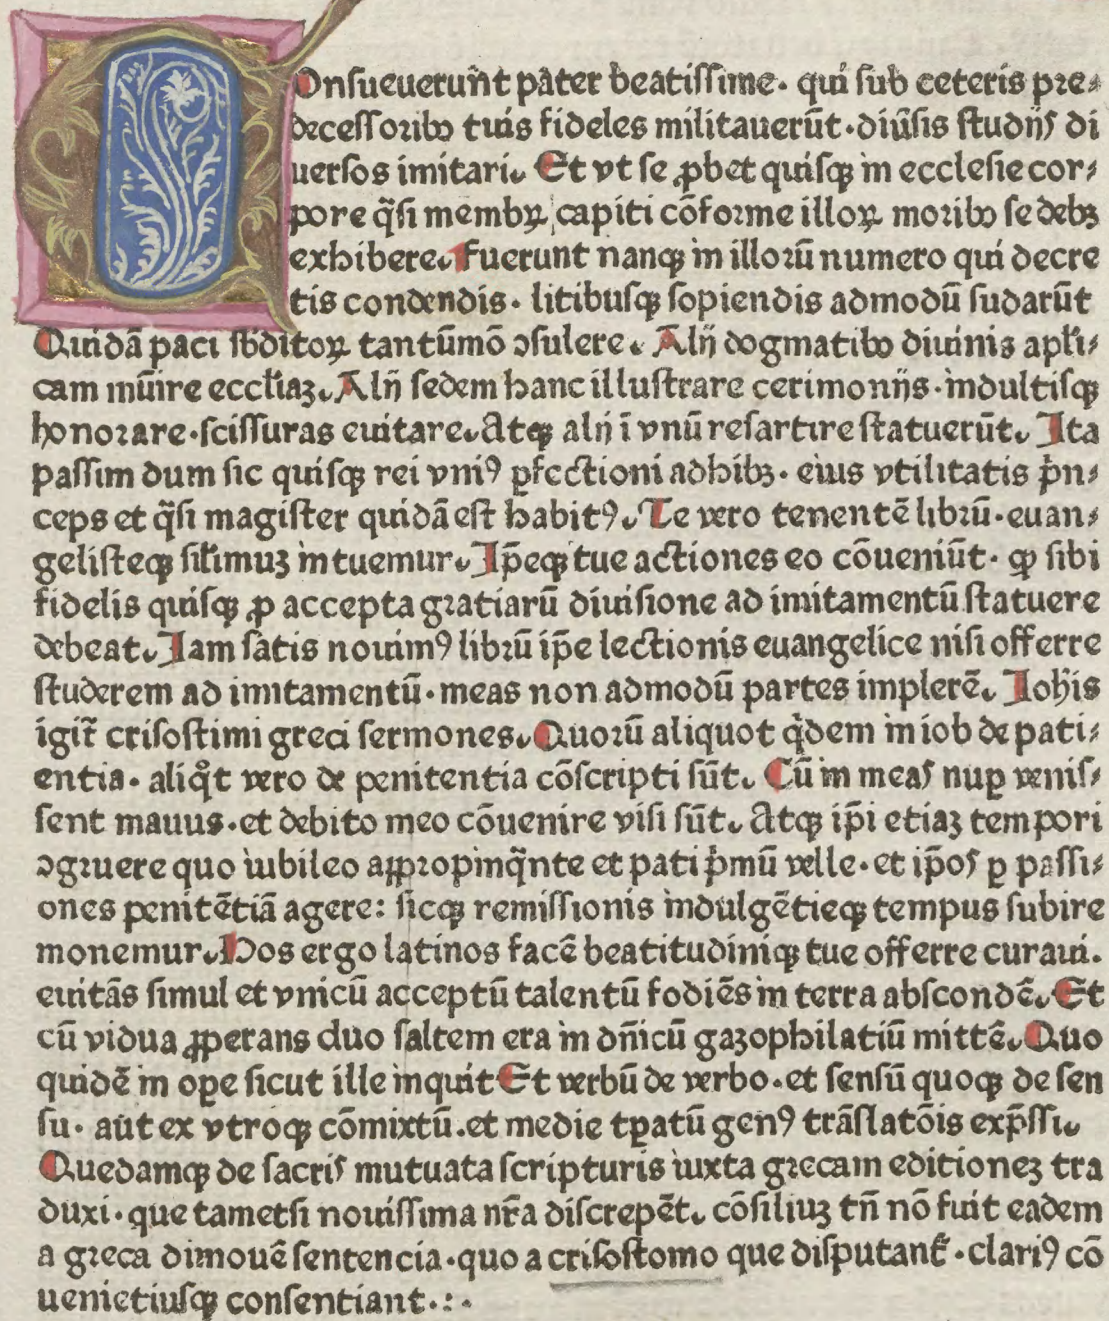 COnſueuerunt pater beatiſſime. qui ſub ceteris pre⸗
deceſſoribꝰ tuis fideles militauerūt. diūſis ſtudijs di
uerſos imitari. Et vt ſe ꝓbet quiſqꝫ in eccleſie cor⸗
pore q̄ſi membꝝ capiti cōforme illoꝝ moribꝰ ſe debꝫ
exhibere. Fuerunt nanqꝫ in illorū numero qui decre
tis condendis. litibuſqꝫ ſopiendis admodū ſudarūt
Quidā paci ſb́ditoꝝ tantūmō ↄſulere. Alij dogmatibꝰ diuinis apl̄i⸗
cam mūire eccl̄iaꝫ. Alij ſedem hanc illuſtrare cerimonijs. indultiſqꝫ
honorare. ſciſſuras euitare. Atqꝫ alij ī vnū reſartire ſtatuerūt. Ita
paſſim dum ſic quiſqꝫ rei vniꝰ ꝑfectioni adhibꝫ. eius vtilitatis p̄n⸗
ceps et q̄ſi magiſter quidā eſt habitꝰ. Te vero tenentē librū. euan⸗
geliſteqꝫ ſil̄imuꝫ intuemur. Ip̄eqꝫ tue actiones eo cōueniūt. ꝙ ſibi
fidelis quiſqꝫ ꝓ accepta gratiarū diuiſione ad imitamentū ſtatuere
debeat. Iam ſatis nouimꝰ librū ip̄e lectionis euangelice niſi offerre
ſtuderem ad imitamentū. meas non admodū partes implerē. Ioh̄is
igit̄ criſoſtimi greci ſermones. Quorū aliquot q̇dem in iob de pati⸗
entia. aliq̊t vero de penitentia cōſcripti ſūt. Cū in meas nuꝑ veniſ⸗
ſent manus. et debito meo cōuenire viſi ſūt. Atqꝫ ip̄i etiaꝫ tempori
ↄgruere quo iubileo appropinq̄nte et pati p̄mū velle. et ip̄os ꝑ paſſi⸗
ones penitētiā agere: ſicqꝫ remiſſionis indulgētieqꝫ tempus ſubire
monemur. Hos ergo latinos facē beatitudiniqꝫ tue offerre curaui.
euitās ſimul et vnicū acceptū talentū fodiēs in terra abſcondē. Et
cū vidua ꝓperans duo ſaltem era in dn̄icū gazophilatiū mittē. Quo
quidē in oꝑe ſicut ille inquit Et verbū de verbo. et ſenſū quoqꝫ de ſen
ſu. aut ex vtroqꝫ cōmixtū. et medie tꝑatū genꝰ trāſlatōis exp̄ſſi.
Quedamqꝫ de ſacris mutuata ſcripturis iuxta grecam editioneꝫ tra
duxi. que tametſi nouiſſima nr̄a diſcrepēt. cōſiliuꝫ tn̄ nō fuit eadem
a greca dimouē ſentencia. quo a criſoſtomo que diſputant̄. clariꝰ cō
uenietiuſqꝫ conſentiant.:.